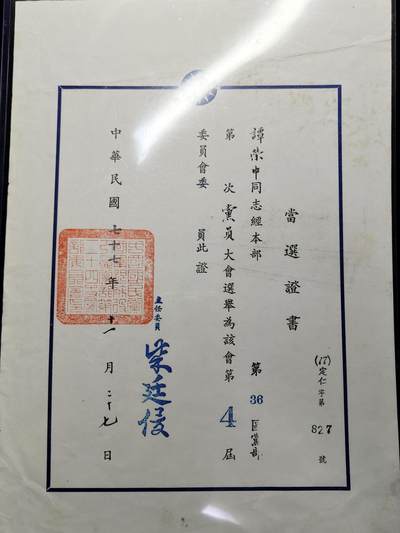 當選證書
(77)定仁字第827號
譚榮中同志經本部第36區黨部
第 次黨員大會選舉為該會第4屆
委員會委 員此證
主任委員 柴廷俊
中華民國七十七年十一月二十七日